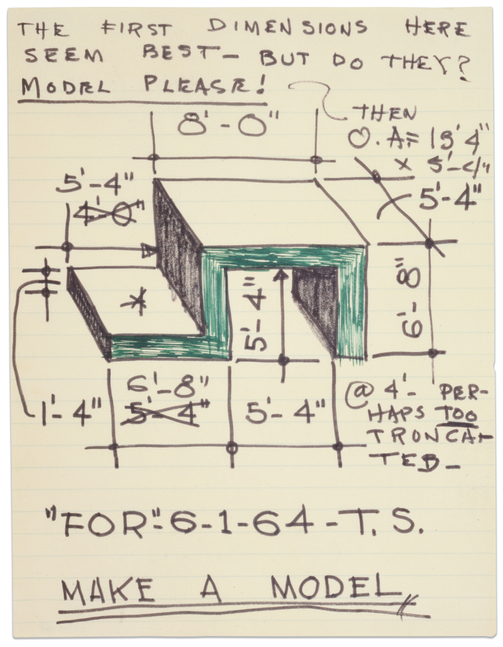 THE FIRST DIMENSIONS HERE
SEEM BEST— BUT DO THEY?
MODEL PLEASE!
THEN
O.A.= 13'4"
x 5'-4"
8'-0"
5'-4"
4'-0"
5'-4"
*
5'-4"
6'-8"
1'-4"
6'-8"
5'-4"
5'-4"
@ 4'- PER-
HAPS TOO
TRONCA-
TED—
"FOR"-6-1-64-T.S.
MAKE A MODEL